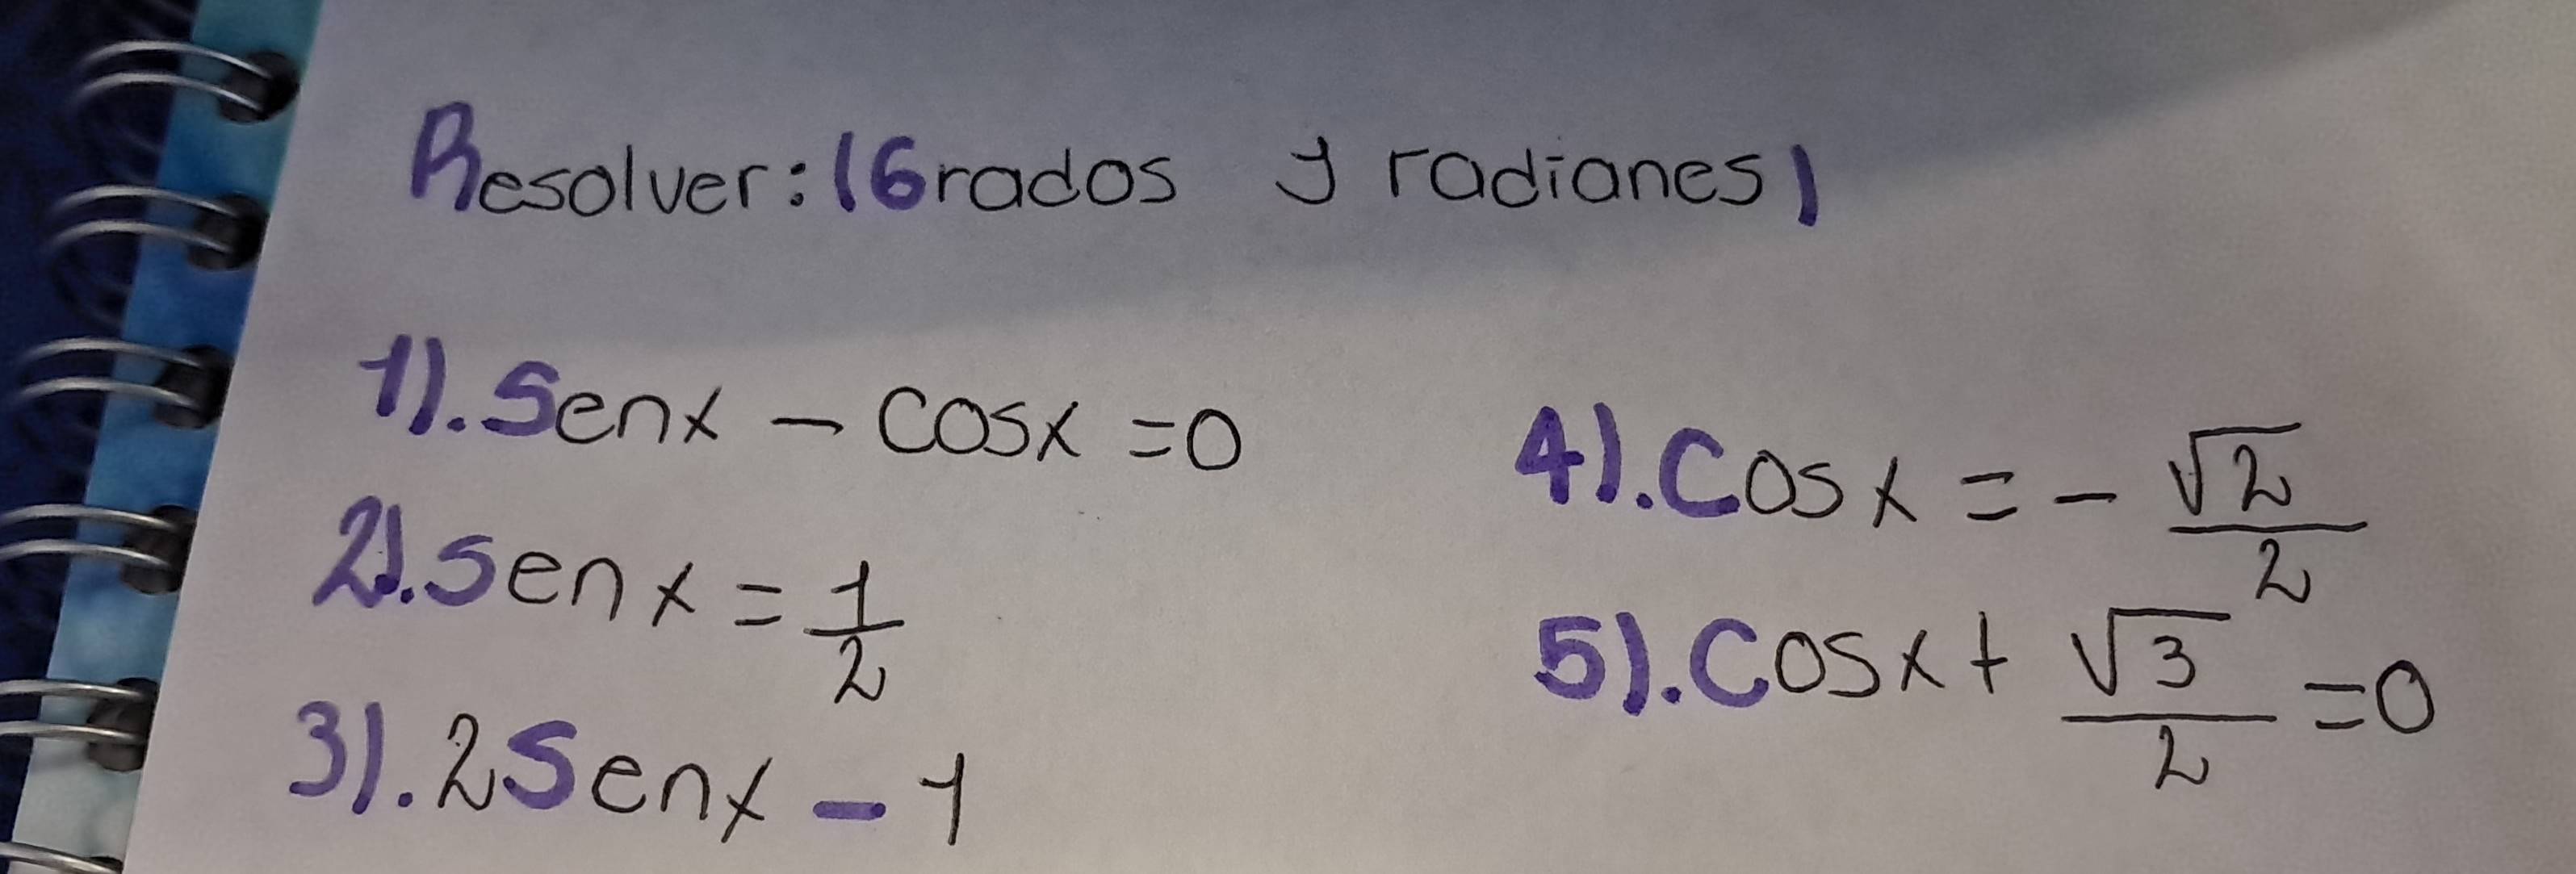 Resolver: (Grados y radianes)
1). Senx - cosx = 0
2). Senx = 1/2
3). 2Senx - 1
4). Cosx = - √2/2
5). Cosx + √3/2 = 0